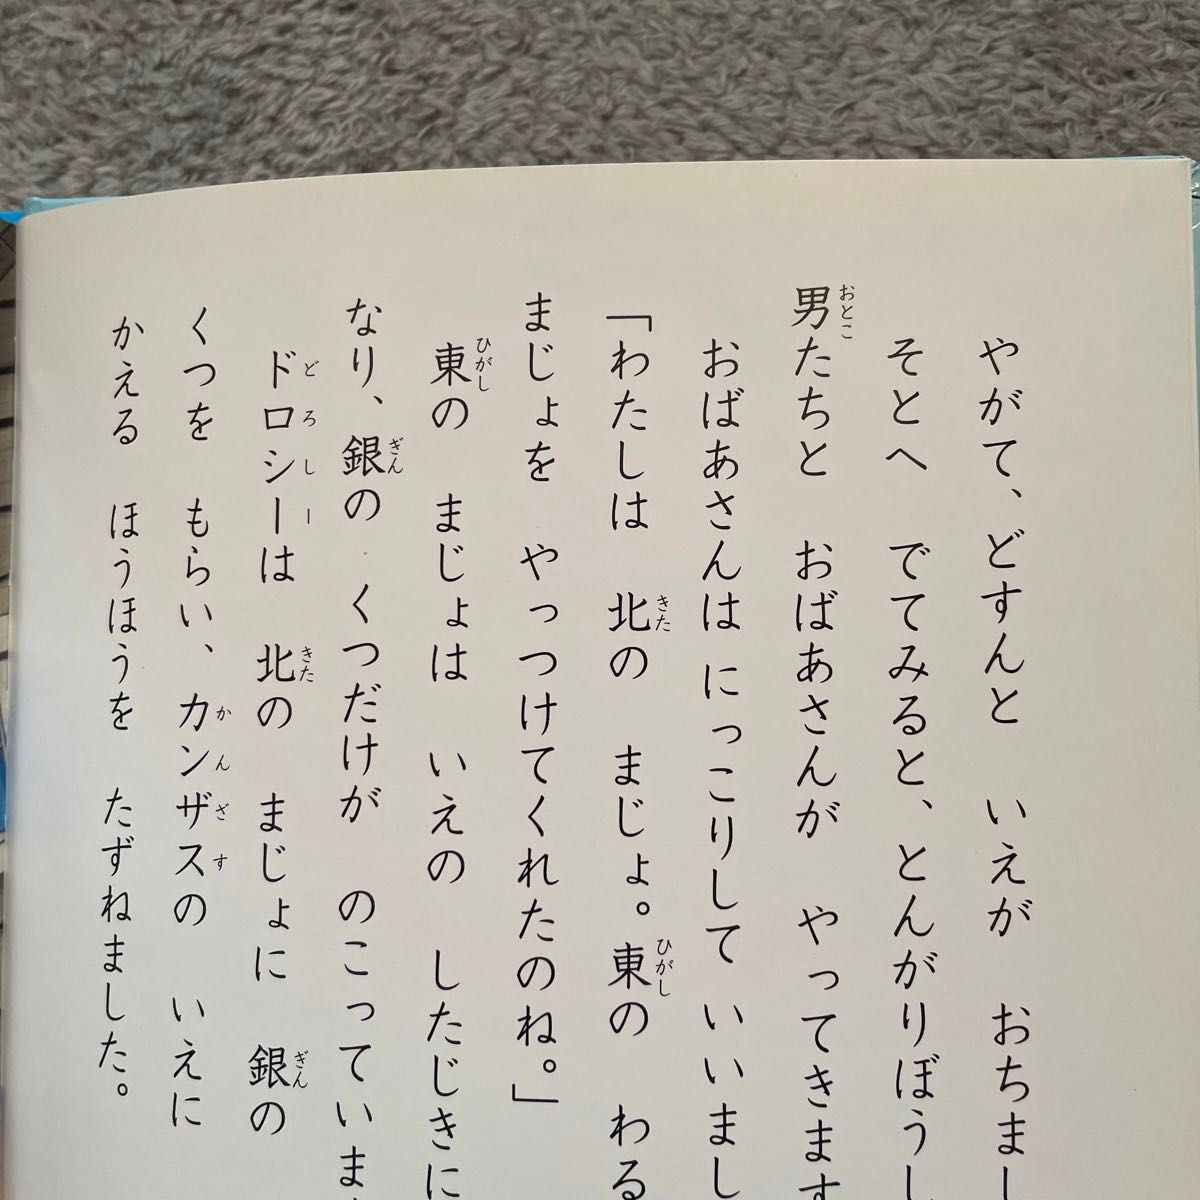 やがて、どすんと いえが おちまし
そとへ でてみると、とんがりぼうし
男たちと おばあさんが やってきます
おばあさんは にっこりして いいまし
「わたしは 北の まじょ。東の わる
まじょを やっつけてくれたのね。」
東の まじょは いえの したじきに
なり、銀の くつだけが のこっていま
ドロシーは 北の まじょに 銀の
くつを もらい、カンザスの いえに
かえる ほうほうを たずねました。